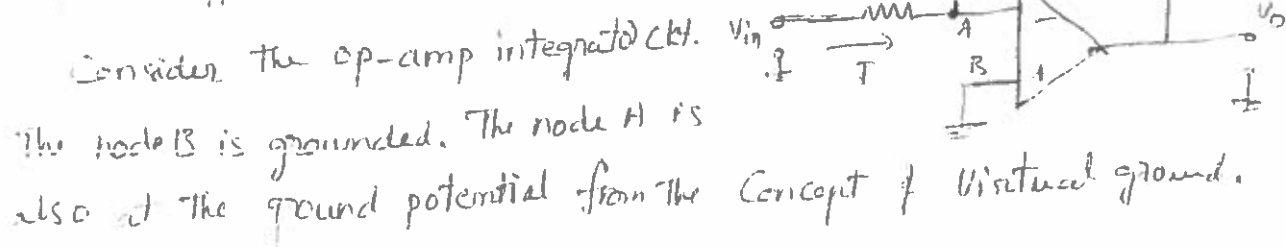 Vo
Consider the op-amp integrator ckt. Vin A
I B
- +
The node B is grounded. The node A is
also at the ground potential from the Concept of Virtual ground.